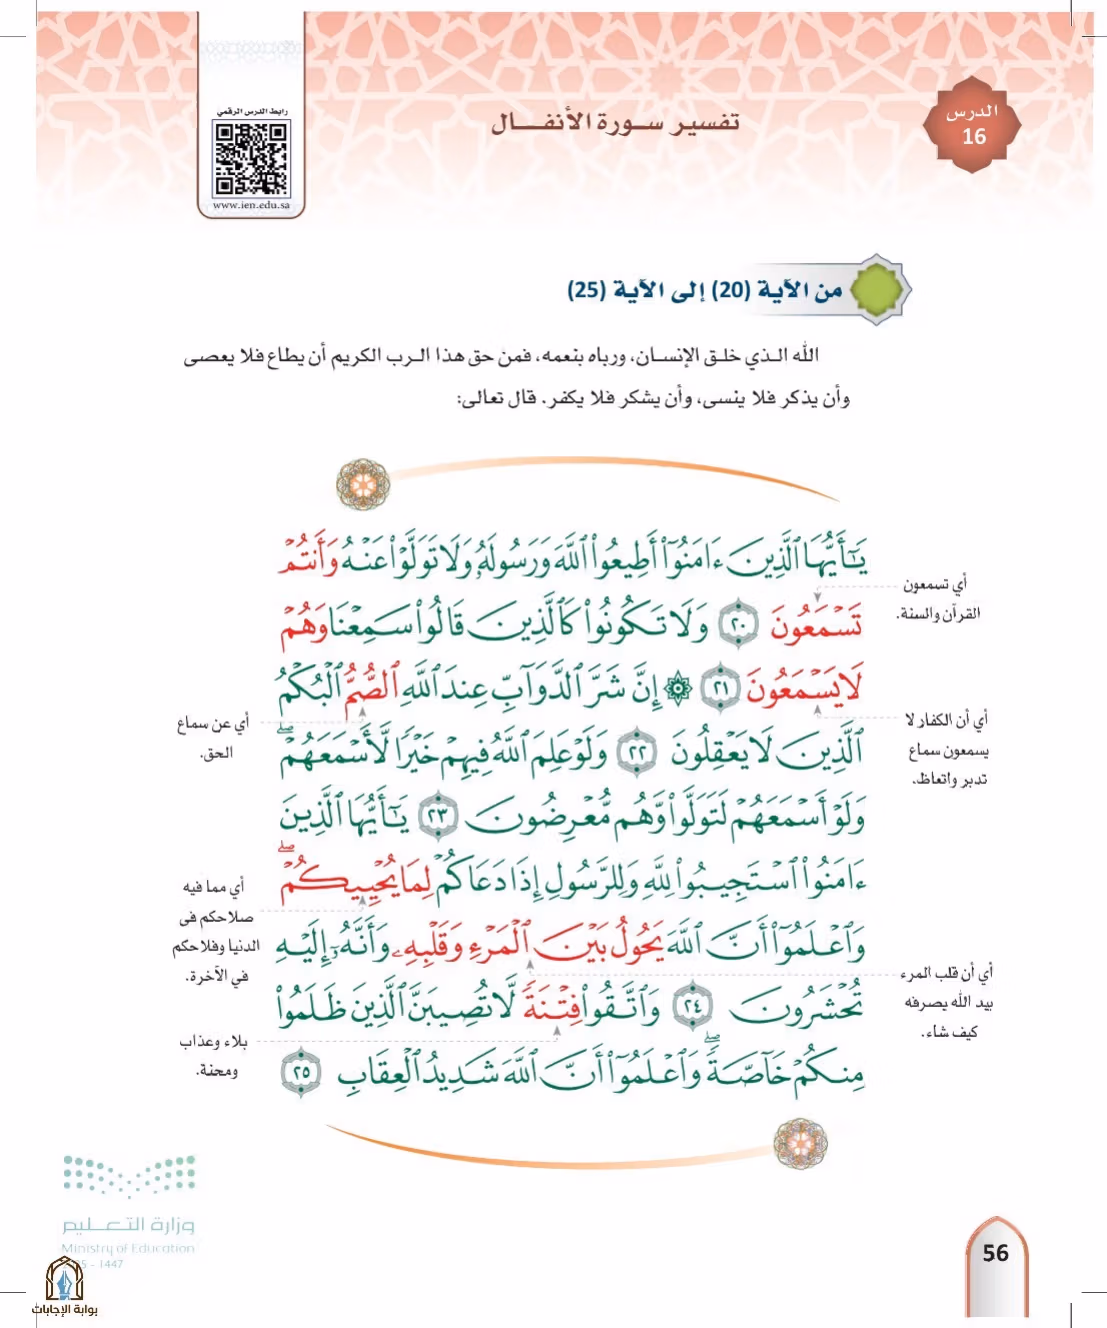 الدرس
16
تفسير سورة الأنفال
رابط الدرس الرقمي
www.ien.edu.sa
من الآية (20) إلى الآية (25)
الله الذي خلق الإنسان، ورباه بنعمه، فمن حق هذا الرب الكريم أن يطاع فلا يعصى
وأن يذكر فلا ينسى، وأن يشكر فلا يكفر. قال تعالى:
يَٰٓأَيُّهَا ٱلَّذِينَ ءَامَنُوٓا۟ أَطِيعُوا۟ ٱللَّهَ وَرَسُولَهُۥ وَلَا تَوَلَّوْا۟ عَنْهُ وَأَنتُمْ
تَسْمَعُونَ ٢٠ وَلَا تَكُونُوا۟ كَٱلَّذِينَ قَالُوا۟ سَمِعْنَا وَهُمْ
لَا يَسْمَعُونَ ٢١ ۞ إِنَّ شَرَّ ٱلدَّوَآبِّ عِندَ ٱللَّهِ ٱلصُّمُّ ٱلْبُكْمُ
ٱلَّذِينَ لَا يَعْقِلُونَ ٢٢ وَلَوْ عَلِمَ ٱللَّهُ فِيهِمْ خَيْرًا لَّأَسْمَعَهُمْ ۖ
وَلَوْ أَسْمَعَهُمْ لَتَوَلَّوا۟ وَّهُم مُّعْرِضُونَ ٢٣ يَٰٓأَيُّهَا ٱلَّذِينَ
ءَامَنُوا۟ ٱسْتَجِيبُوا۟ لِلَّهِ وَلِلرَّسُولِ إِذَا دَعَاكُمْ لِمَا يُحْيِيكُمْ ۖ
وَٱعْلَمُوٓا۟ أَنَّ ٱللَّهَ يَحُولُ بَيْنَ ٱلْمَرْءِ وَقَلْبِهِۦ وَأَنَّهُۥٓ إِلَيْهِ
تُحْشَرُونَ ٢٤ وَٱتَّقُوا۟ فِتْنَةً لَّا تُصِيبَنَّ ٱلَّذِينَ ظَلَمُوا۟
مِنكُمْ خَآصَّةً ۖ وَٱعْلَمُوٓا۟ أَنَّ ٱللَّهَ شَدِيدُ ٱلْعِقَابِ ٢٥
أي تسمعون
القرآن والسنة.
أي أن الكفار لا
يسمعون سماع
تدبر واتعاظ.
أي عن سماع
الحق.
أي مما فيه
صلاحكم في
الدنيا وفلاحكم
في الآخرة.
أي أن قلب المرء
بيد الله يصرفه
كيف شاء.
بلاء وعذاب
ومحنة.
وزارة التعليم
Ministry of Education
5 - 1447
بوابة الإجابات
56